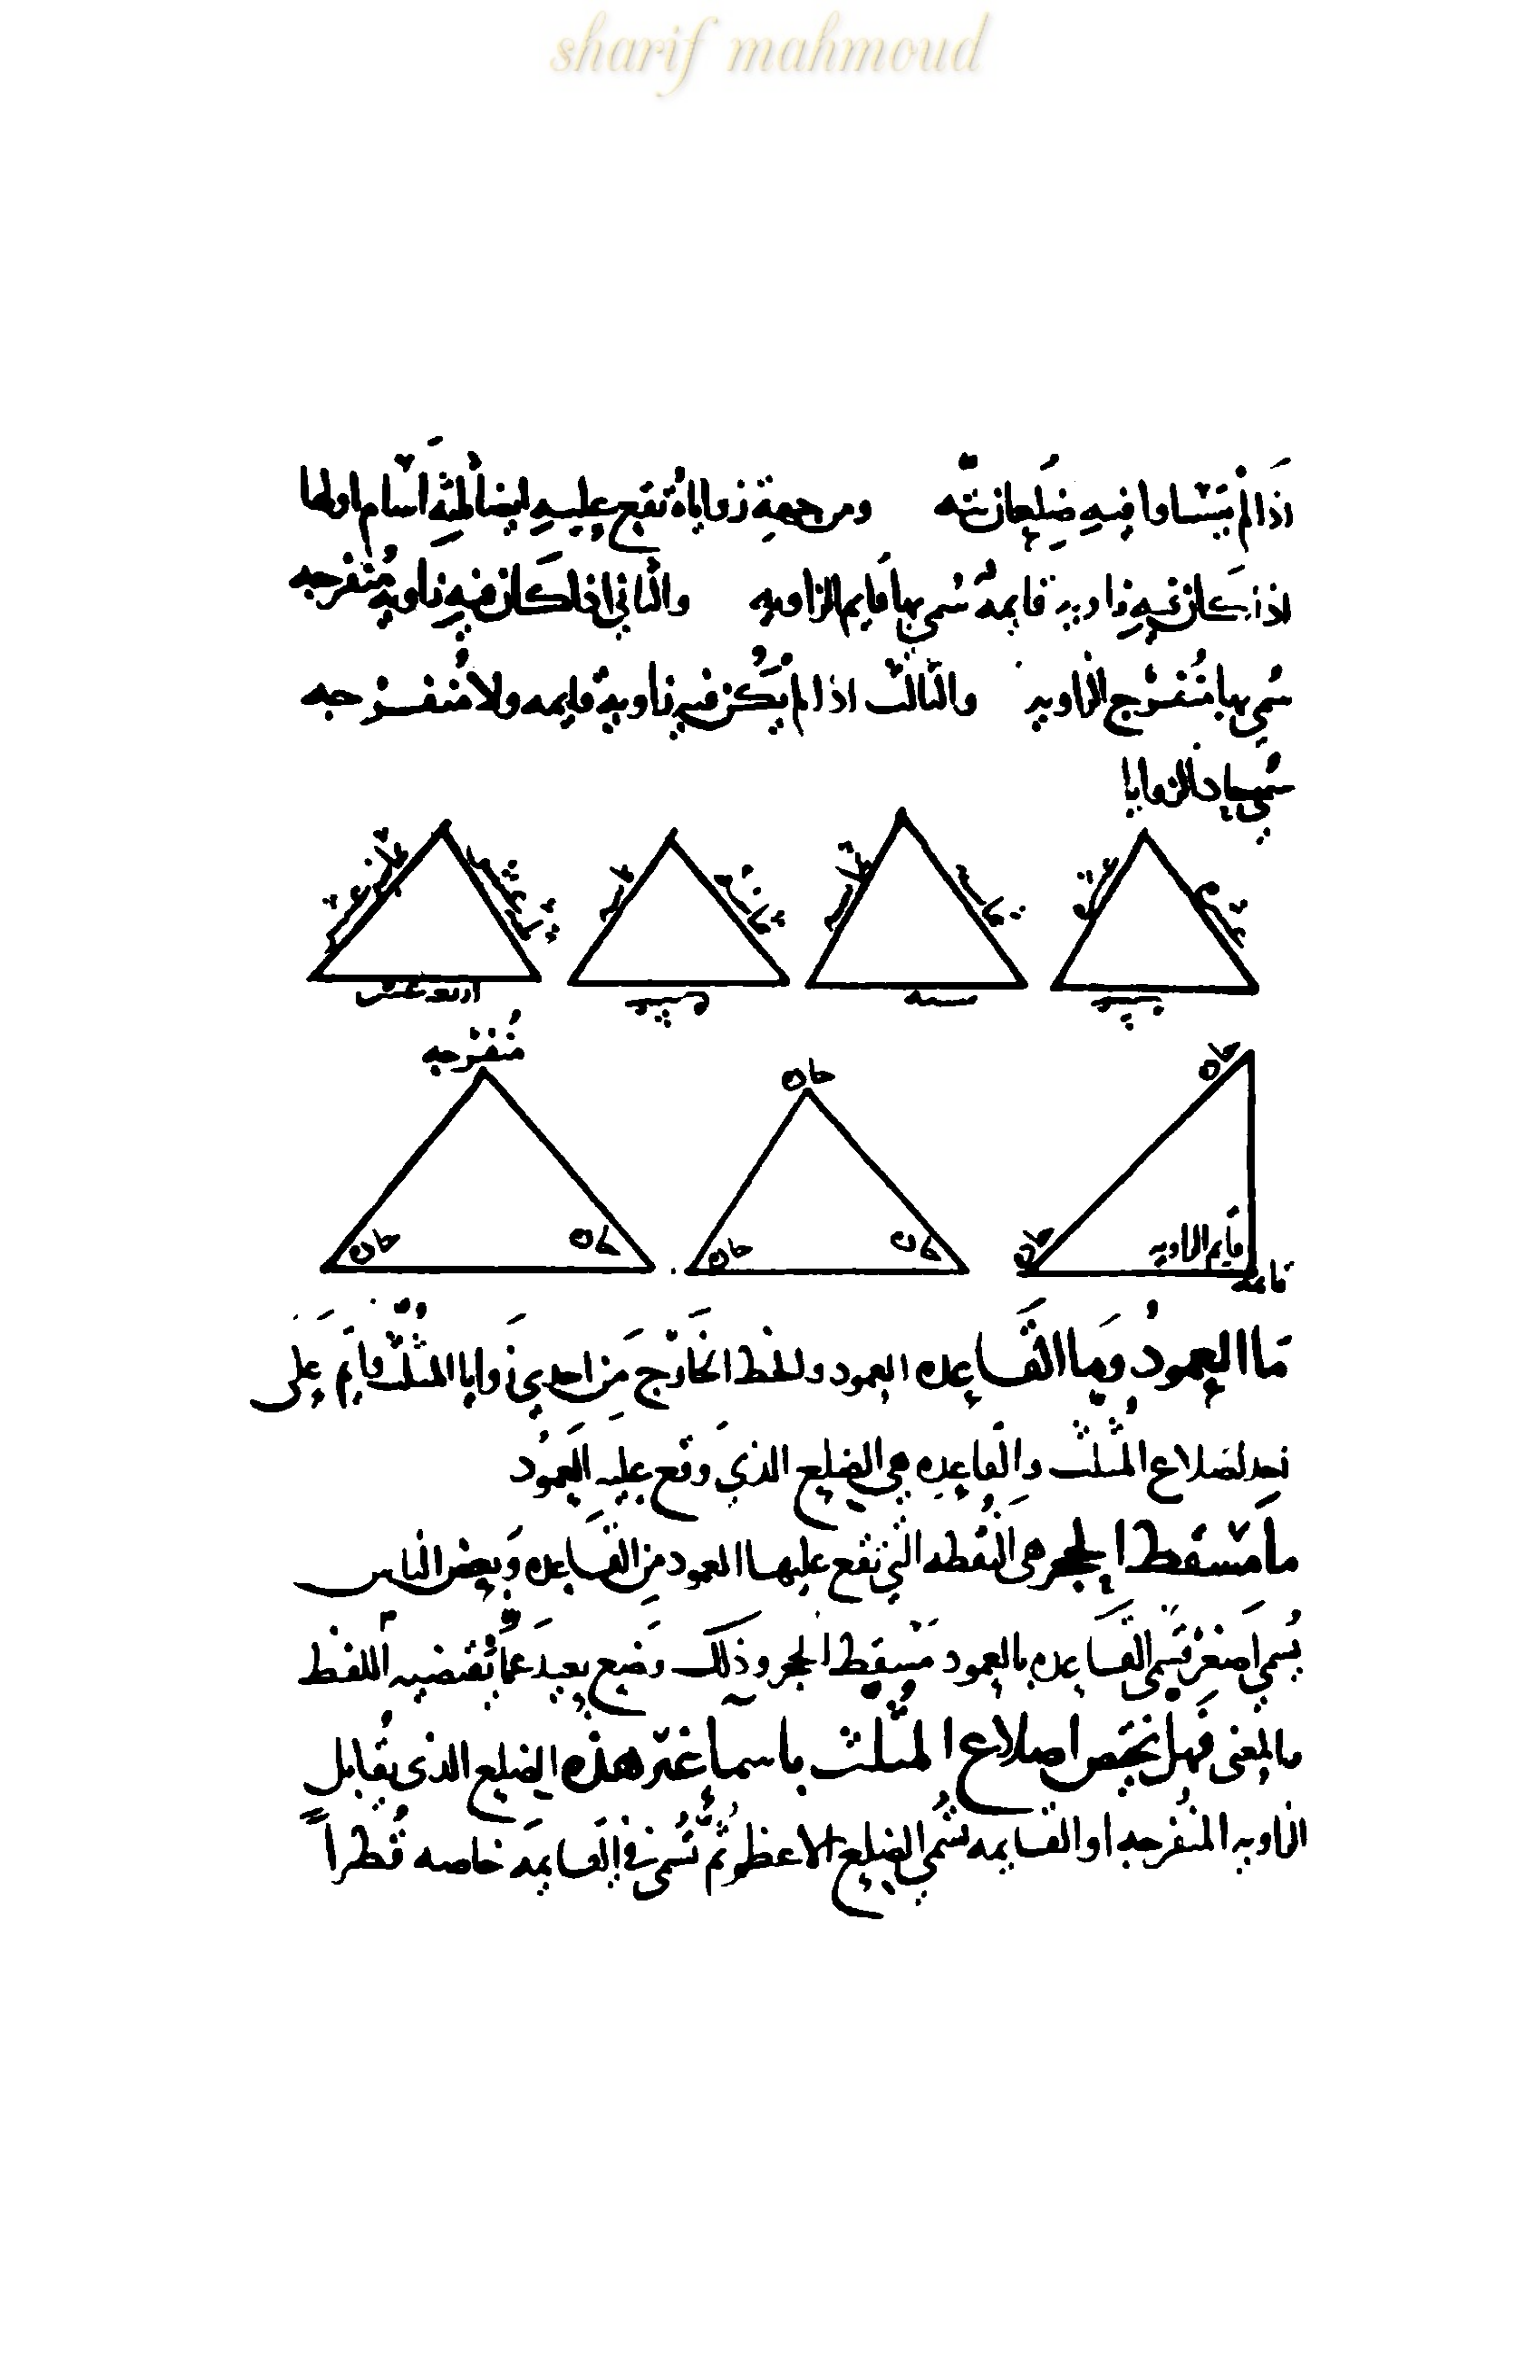 sharif mahmoud
اذا لم يتساوا فيه ضلعان منه ومن جهة زواياه تقع عليه ايضا ثلثة اسام اولها
اذا كان فيه زاويه قايمة سمي بها قايم الزاويه والثاني اذا كان فيه زاويه منفرجه
سمي بها منفرج الزاويه والثالث اذا لم يكن فيه زاوية قايمه ولا منفرجه
سمي حاد الزوايا
سته
اربعه عشر
منفرجه
حاده
حاده
حاده
حاده
حاده
حاده
حاده
قايم الزاويه
قايمه
ما العمود وما القاعده العمود والخط الخارج من احدي زوايا المثلث قايم على
احد اضلاع المثلث والقاعده هي الضلع الذي وقع عليه العمود
ما مسقط الحجر هي النقطه التي تقع عليها العمود من القاعده وبعض الناس
يسمي اصغر قسمي القاعده بالعمود مسقط الحجر وذلك وضع بعيد عما تقتضيه اللفظ
بالمعنى فهل تختص اضلاع المثلث باسما غير هذه الضلع الذي يقابل
الزاويه المنفرجه او القايمه تسمي الضلع الاعظم ثم تسمى في القايمه خاصه قطرا